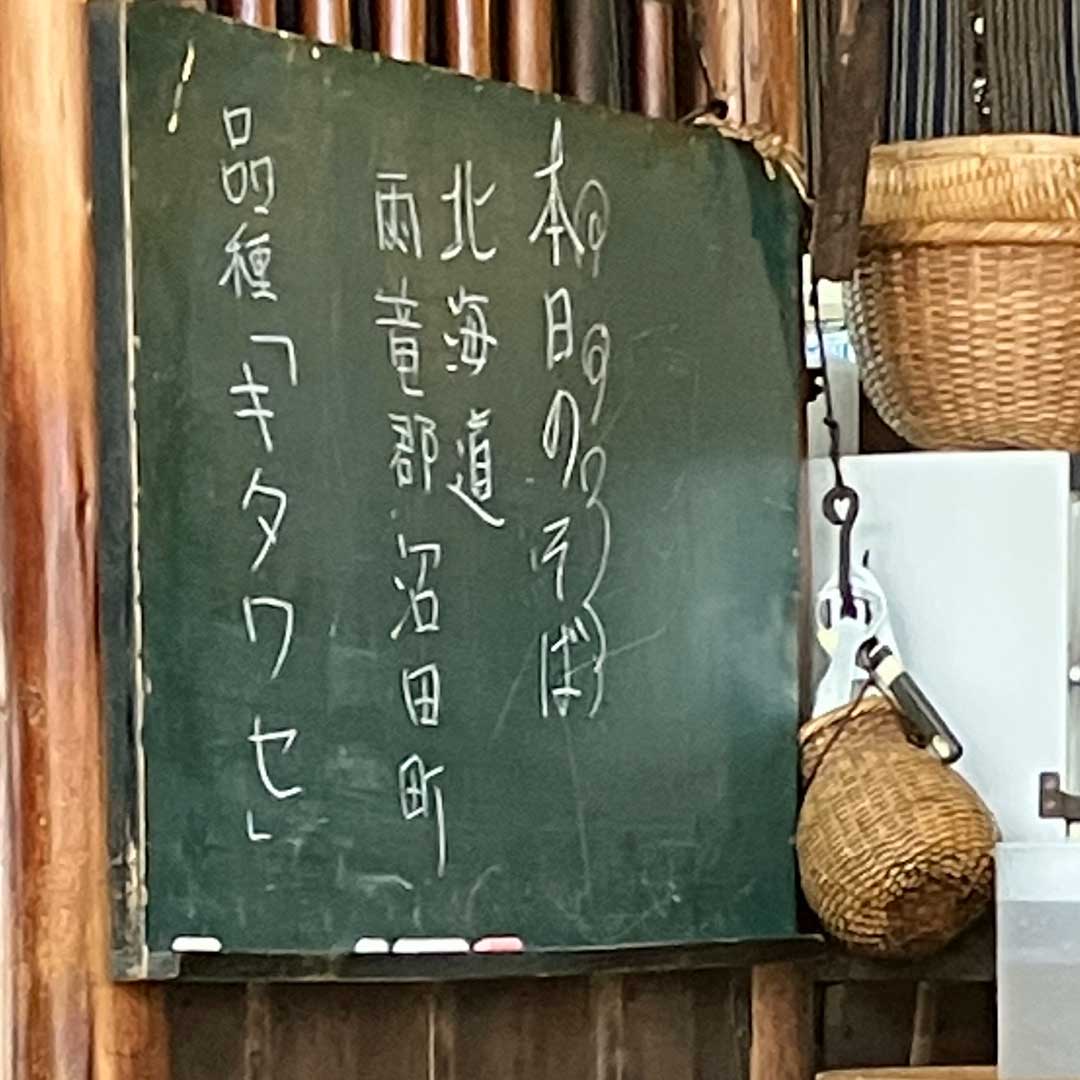 本日のそば
北海道
雨竜郡沼田町
品種「キタワセ」